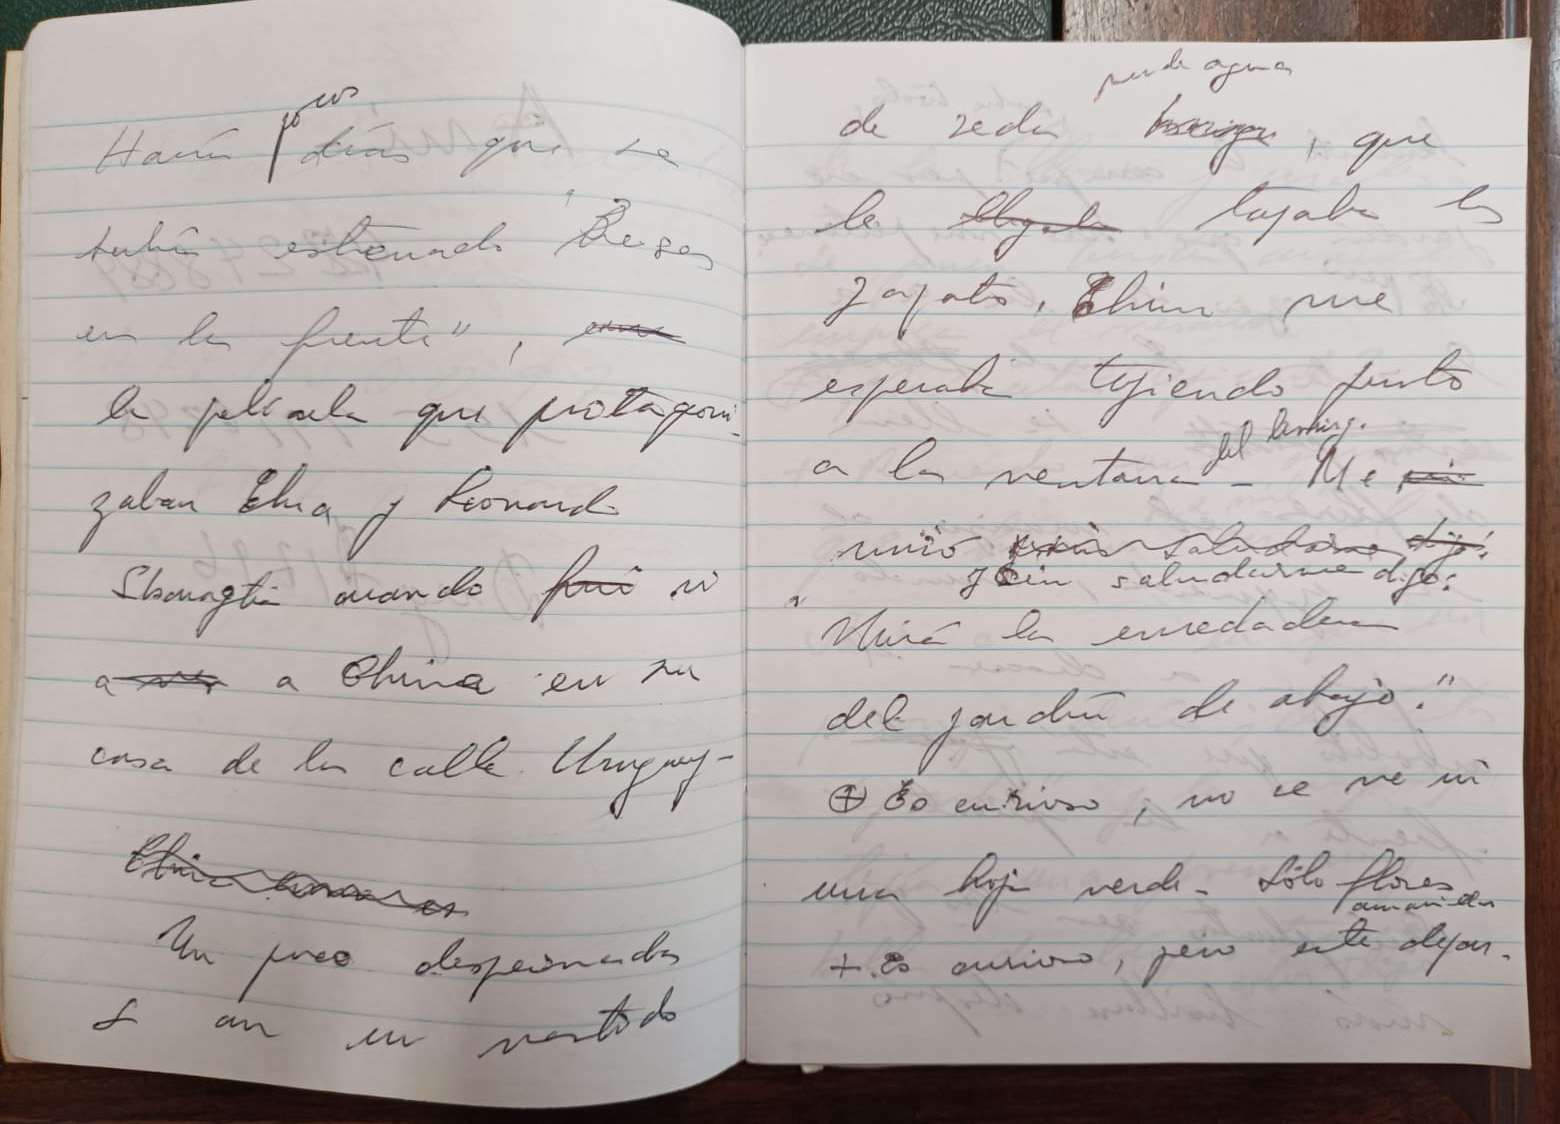 Hacía pocos días que se
había estrenado "Besos
en la frente",
la película que protagoni-
zaban Elsa y Leonardo
Sbaraglia cuando fui vi
a a China en su
casa de la calle Uruguay-
China
Un poco despeinada
& con un vestido
de seda verde agua, que
le llegaba tapaba los
zapatos. China me
esperaba tejiendo junto
a la ventana del living. Me
miró y sin saludarme dijo:
y sin saludarme dijo:
"Mirá la enredadera
del jardín de abajo."
⊕ Es curioso, no se ve ni
una hoja verde- Sólo flores
amarillas
+ Es curioso, pero este depar-